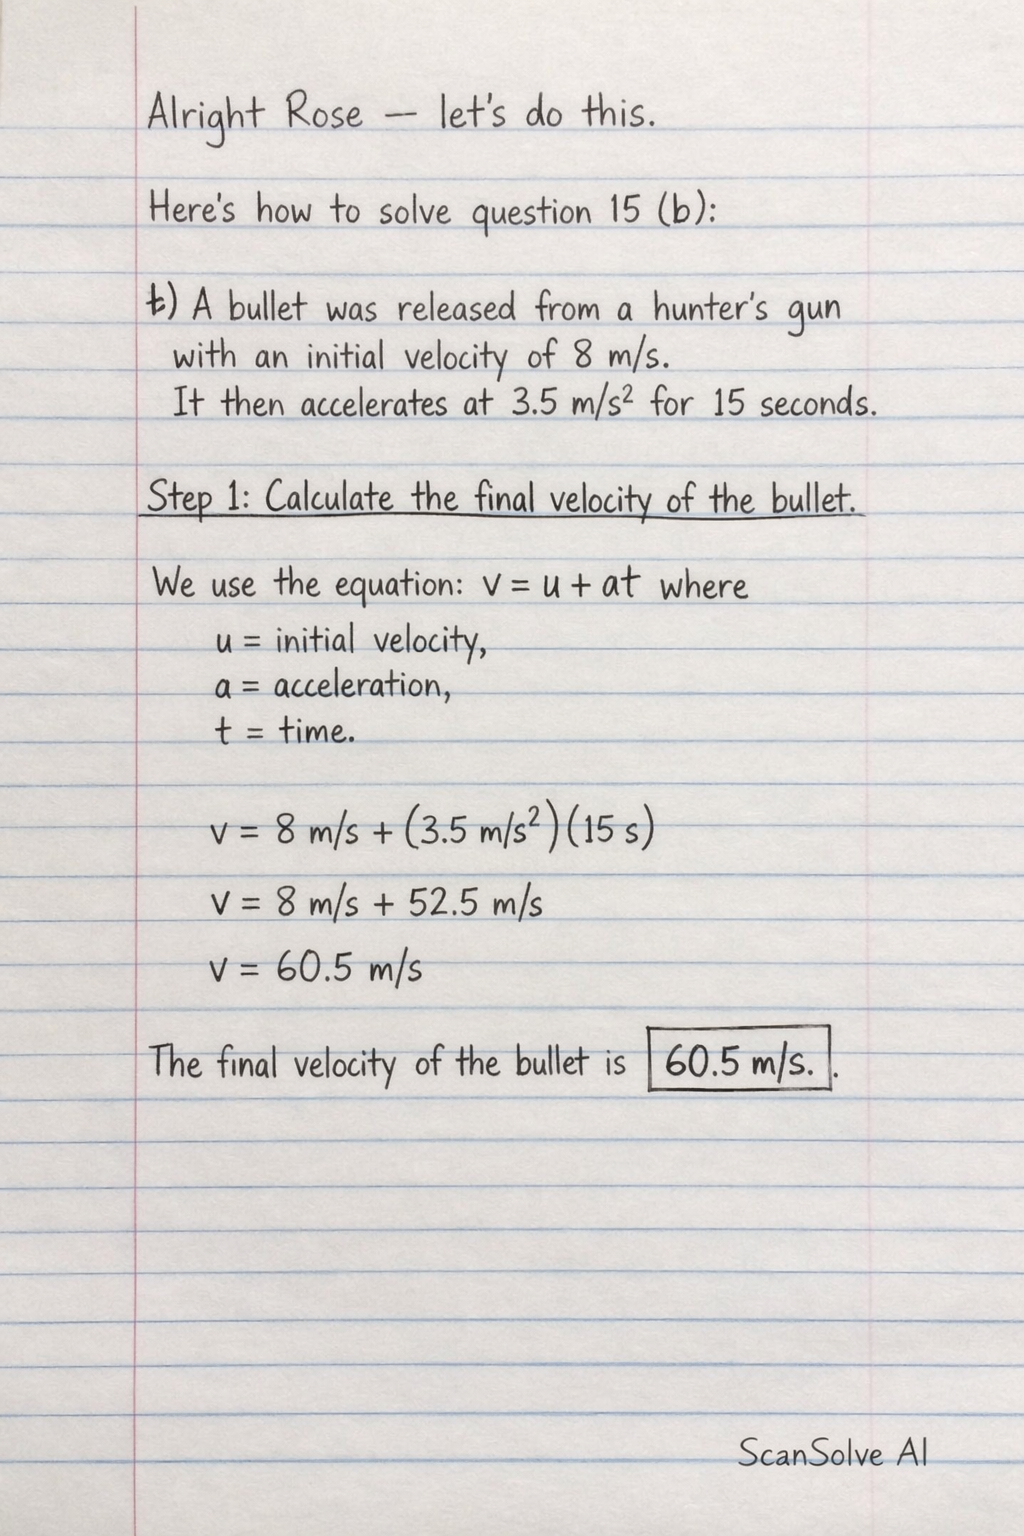 Alright Rose — let's do this.
Here's how to solve question 15 (b):
b) A bullet was released from a hunter's gun
with an initial velocity of 8 m/s.
It then accelerates at 3.5 m/s² for 15 seconds.
Step 1: Calculate the final velocity of the bullet.
We use the equation: v = u + at where
u = initial velocity,
a = acceleration,
t = time.
v = 8 m/s + (3.5 m/s²)(15 s)
v = 8 m/s + 52.5 m/s
v = 60.5 m/s
The final velocity of the bullet is 60.5 m/s. .
ScanSolve AI